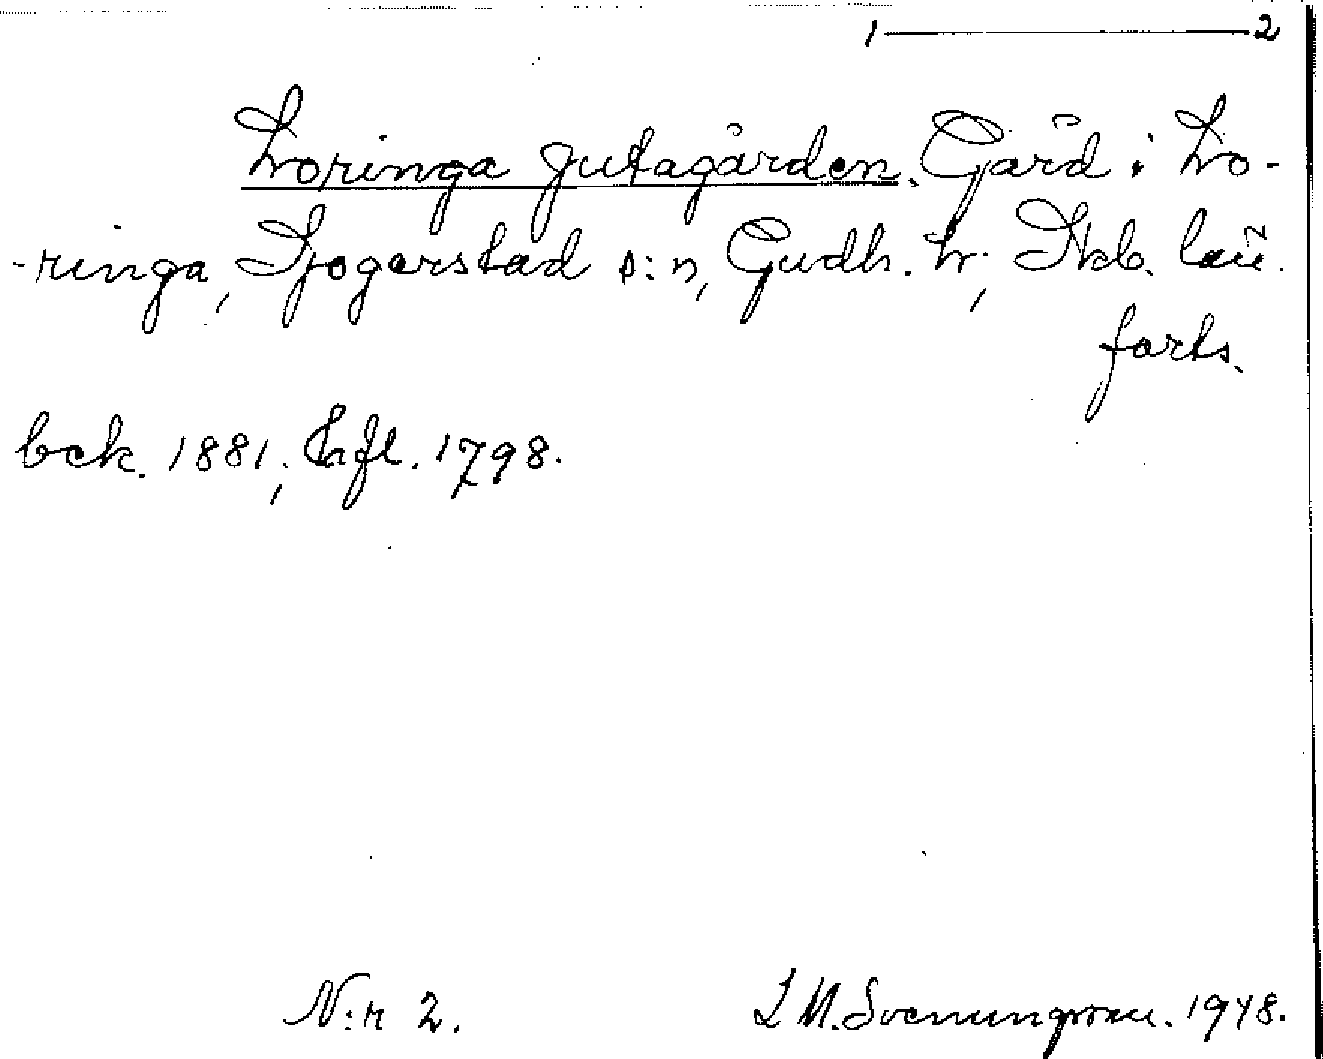 1 — 2
Horinga Jutagården. Gård i Ho-
-ringa, Sjogerstad s:n, Gudh. hr; Skb. län.
forts.
bck. 1881; Hfl. 1798.
N:r 2. L M. Svenungsson. 1948.